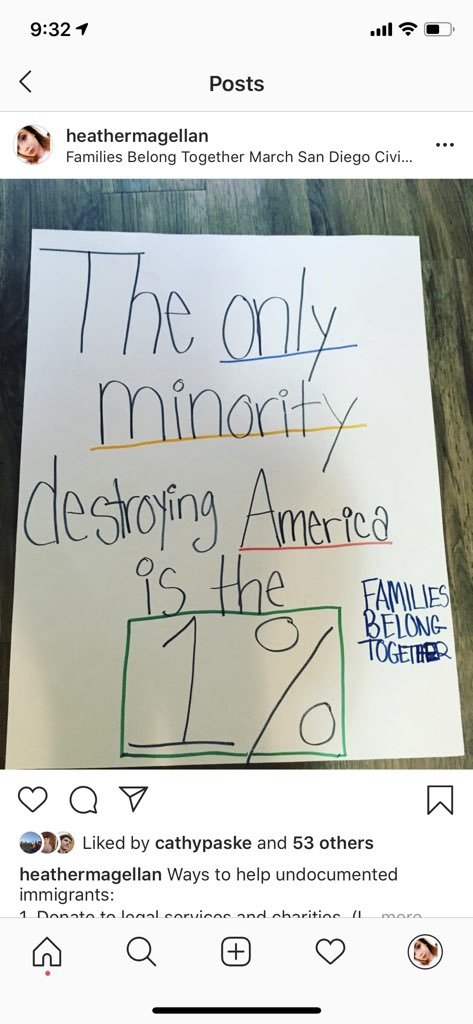 9:32
Posts
heathermagellan
Families Belong Together March San Diego Civi...
The only
minority
destroying America
is the
1%
FAMILIES
BELONG
TOGETHER
Liked by cathypaske and 53 others
heathermagellan Ways to help undocumented
immigrants:
1. Donate to legal services and charities. (I... more